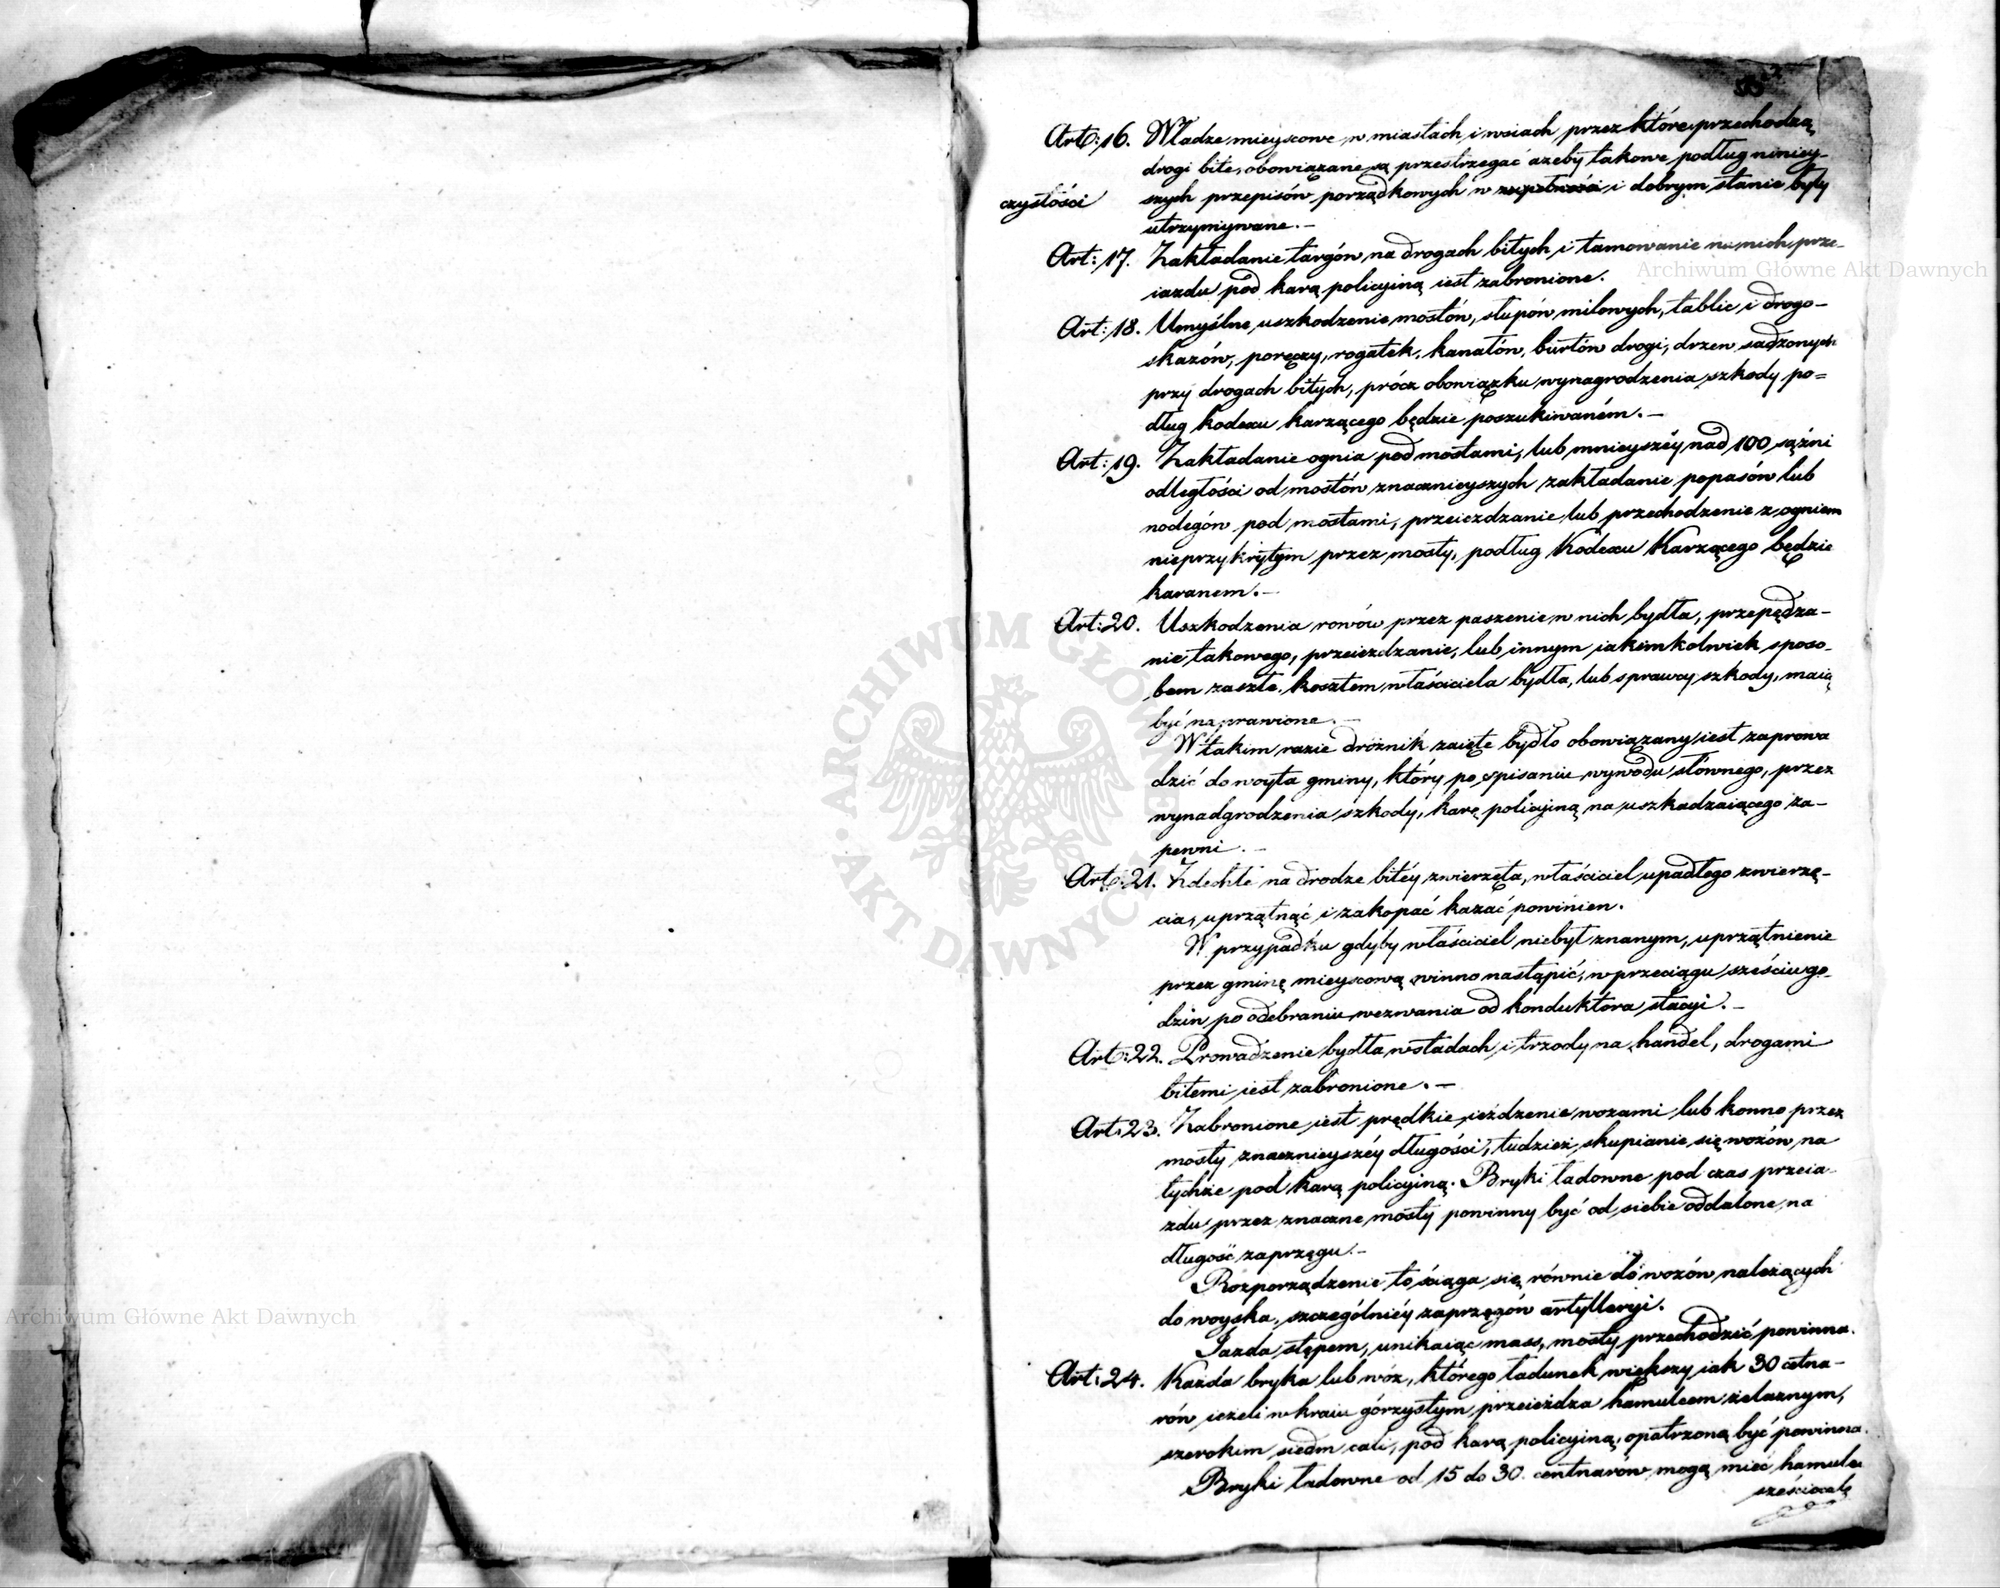 Art: 16. Władze mieyscowe w miastach i wsiach przez które przechodzą
drogi bite, obowiązane są przestrzegać ażeby takowe podług niniey-
szych przepisów porządkowych w zupełności i dobrym stanie były
czystości
utrzymywane. -
Art: 17. Zakładanie targów na drogach bitych i tamowanie na nich prze-
iazdu pod karą policyiną iest zabronione.
Art: 18. Umyślne uszkodzenie mostów, słupów milowych, tablic i drogo-
skazów, poręczy, rogatek, kanałów, burtów drogi, drzew sadzonych
przy drogach bitych, prócz obowiązku wynagrodzenia szkody po=
dług kodexu karzącego będzie poszukiwaném. -
Art: 19. Zakładanie ognia pod mostami, lub mnieyszéy nad 100 sążni
odległości od mostów znacznieyszych zakładanie popasów lub
noclegów pod mostami, przeiezdzanie lub przechodzenie z ogniem
nieprzykrytym przez mosty, podług Kodexu Karzącego będzie
karanem. -
Art: 20. Uszkodzenia rowów przez paszenie w nich bydła, przepędza-
nie takowego, przeiezdzanie, lub innym iakimkolwiek sposo-
bem zaszłe, kosztem właściciela bydła, lub sprawcy szkody, maią
być naprawione. -
W takim razie dróżnik zaięte bydło obowiązany iest zaprowa
dzić do woyta gminy, który po spisaniu wywodu słównego, przez
wynadgrodzenia szkody, karę policyiną na uszkadzaiącego za-
pewni. -
Art: 21. Zdechłe na drodze bitéy zwierzęta, właściciel upadłego zwierzę-
cia, uprzątnąć i zakopać kazać powinien.
W przypadku gdyby właściciel niebył znanym, uprzątnienie
przez gminę mieyscową winno nastąpić, w przeciągu sześciu go-
dzin po odebraniu wezwania od konduktora stacyi. -
Art: 22. Prowadzenie bydła w stadach i trzody na handel, drogami
bitemi iest zabronione. -
Art: 23. Zabronione iest prędkie ieżdzenie wozami lub konno przez
mosty znacznieyszéy długości, tudzież skupianie się wozów na
tychże pod karą policyiną. Bryki ładowne pod czas przeia-
zdu przez znaczne mosty powinny być od siebie oddalone na
długość zaprzęgu. -
Rozporządzenie to ściąga się równie do wozów należących
do woyska, szczególniéy zaprzęgów artylleryi.
Jazda stępem, unikaiąc mass, mosty przechodzić powinna.
Art: 24. Każda bryka lub wóz, którego ładunek większy iak 30 cetna-
rów ieżeli w kraiu górzystym przeieżdza hamulcem żelaznym,
szerokim siedm cali, pod karą policyiną, opatrzoną być powinna.
Bryki ładowne od 15 do 30. centnarów mogą mieć hamulec
sześciocalo
Archiwum Główne Akt Dawnych
Archiwum Główne Akt Dawnych
ARCHIWUM GŁÓWNE · AKT DAWNYCH ·